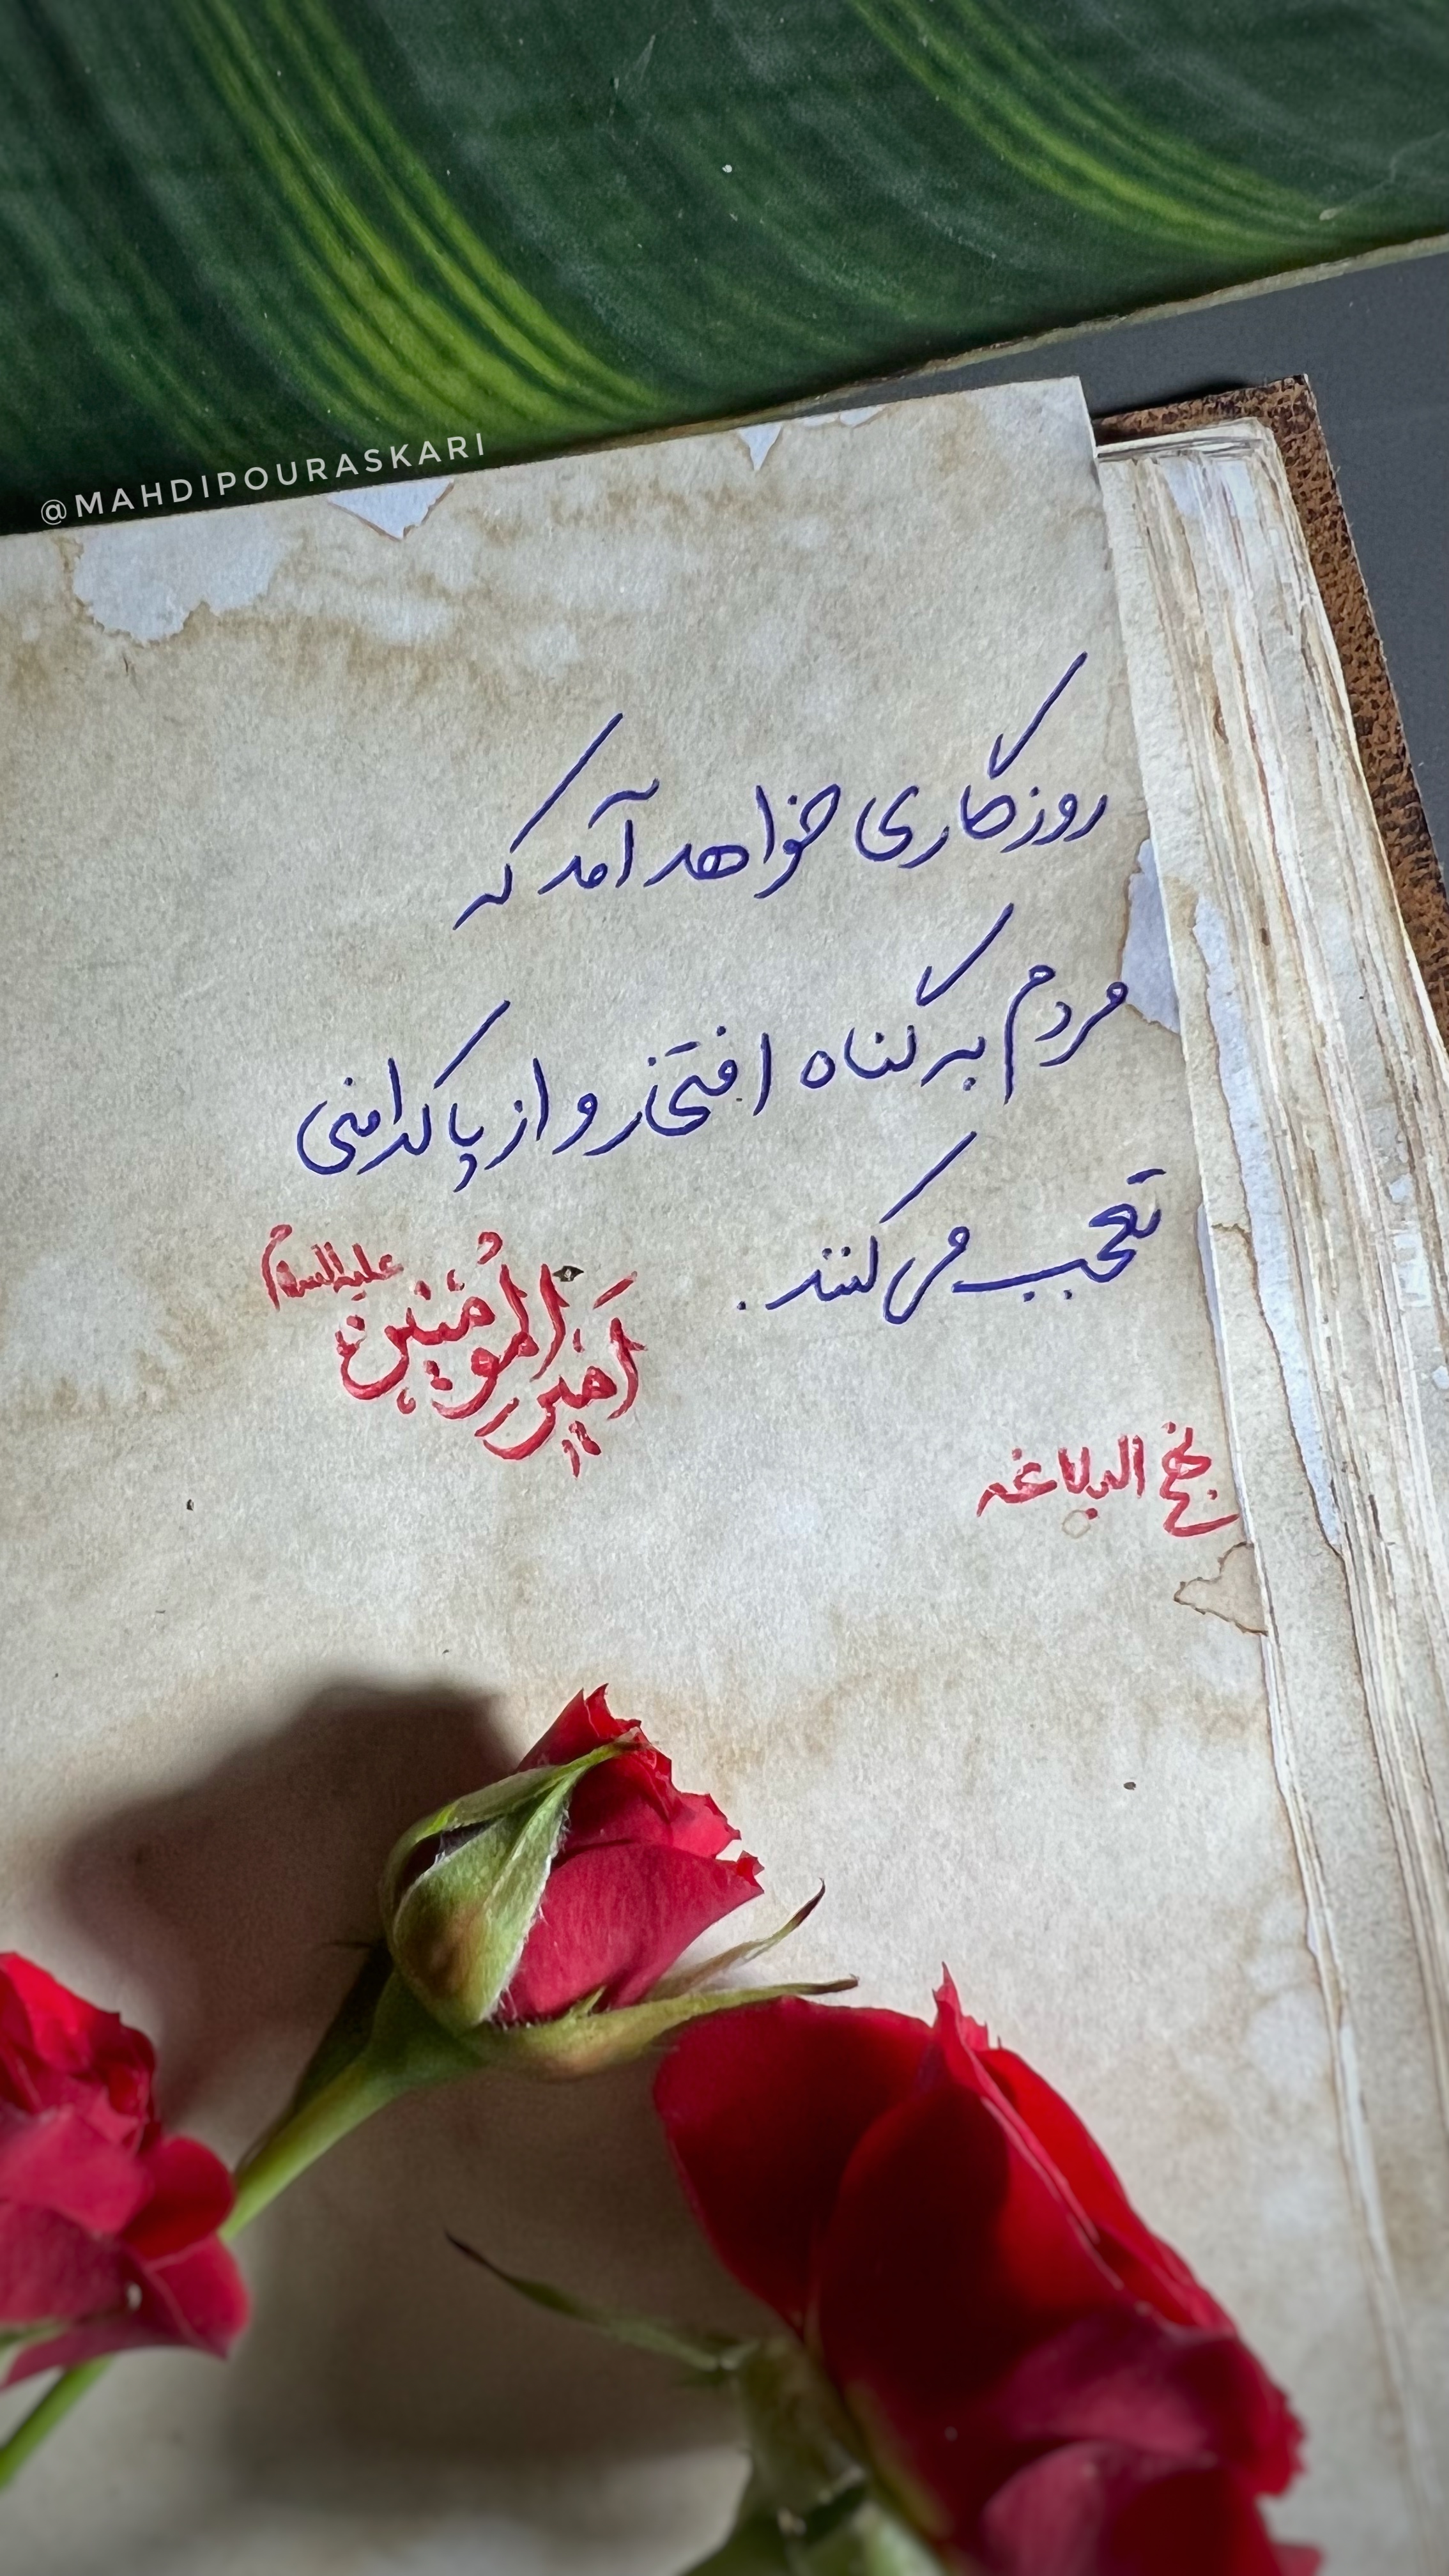 @MAHDIPOURASKARI
روزگاری خواهد آمد که
مردم به گناه افتخار و از پاکدامنی
تعجب می کنند.
امیرالمؤمنین علیه السلام
نهج البلاغه